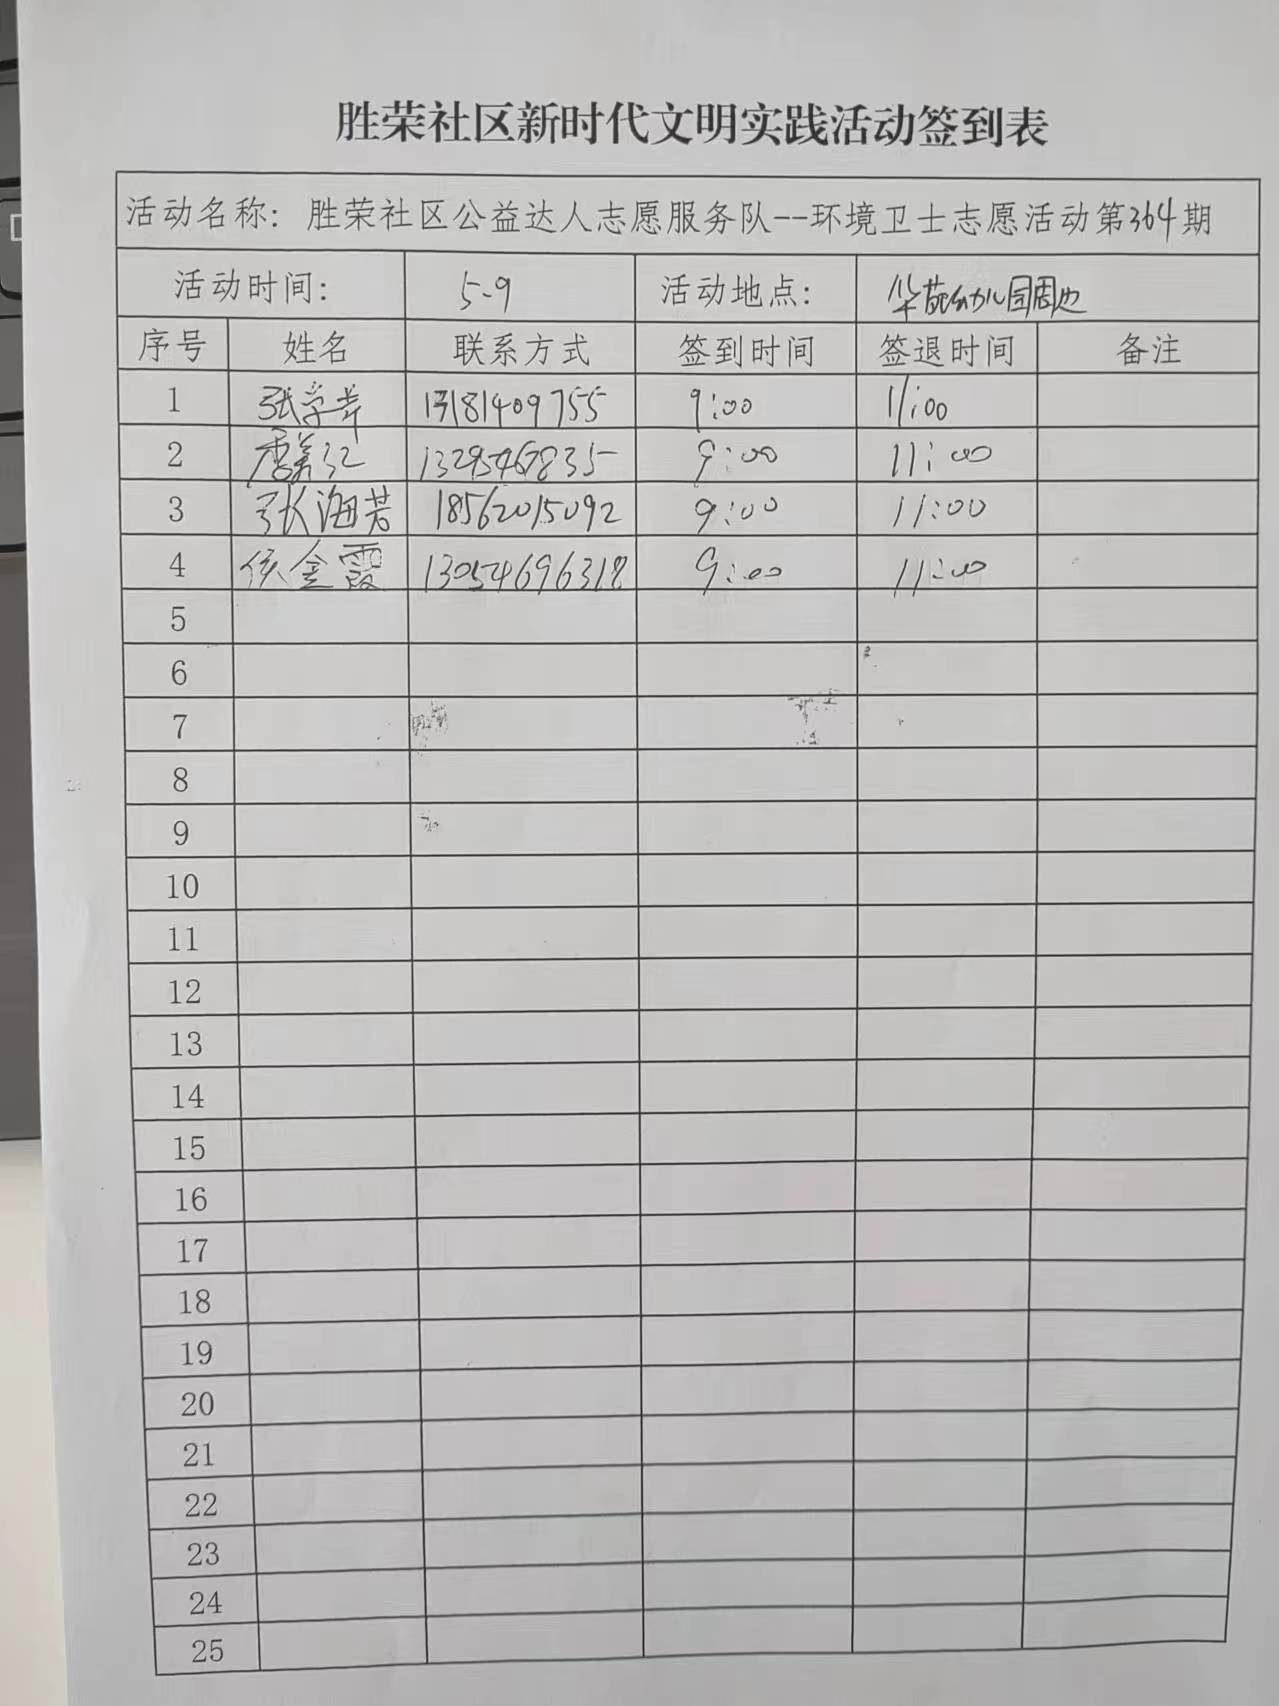 胜荣社区新时代文明实践活动签到表
活动名称：胜荣社区公益达人志愿服务队--环境卫士志愿活动第364期
活动时间： 5-9 活动地点： 华苑幼儿园周边
序号 姓名 联系方式 签到时间 签退时间 备注
1 张学芹 13181409755 9:00 11:00
2 13295467835 9:00 11:00
3 张海芳 18562015092 9:00 11:00
4 侯金霞 13054696318 9:00 11:00
5
6
7
8
9
10
11
12
13
14
15
16
17
18
19
20
21
22
23
24
25